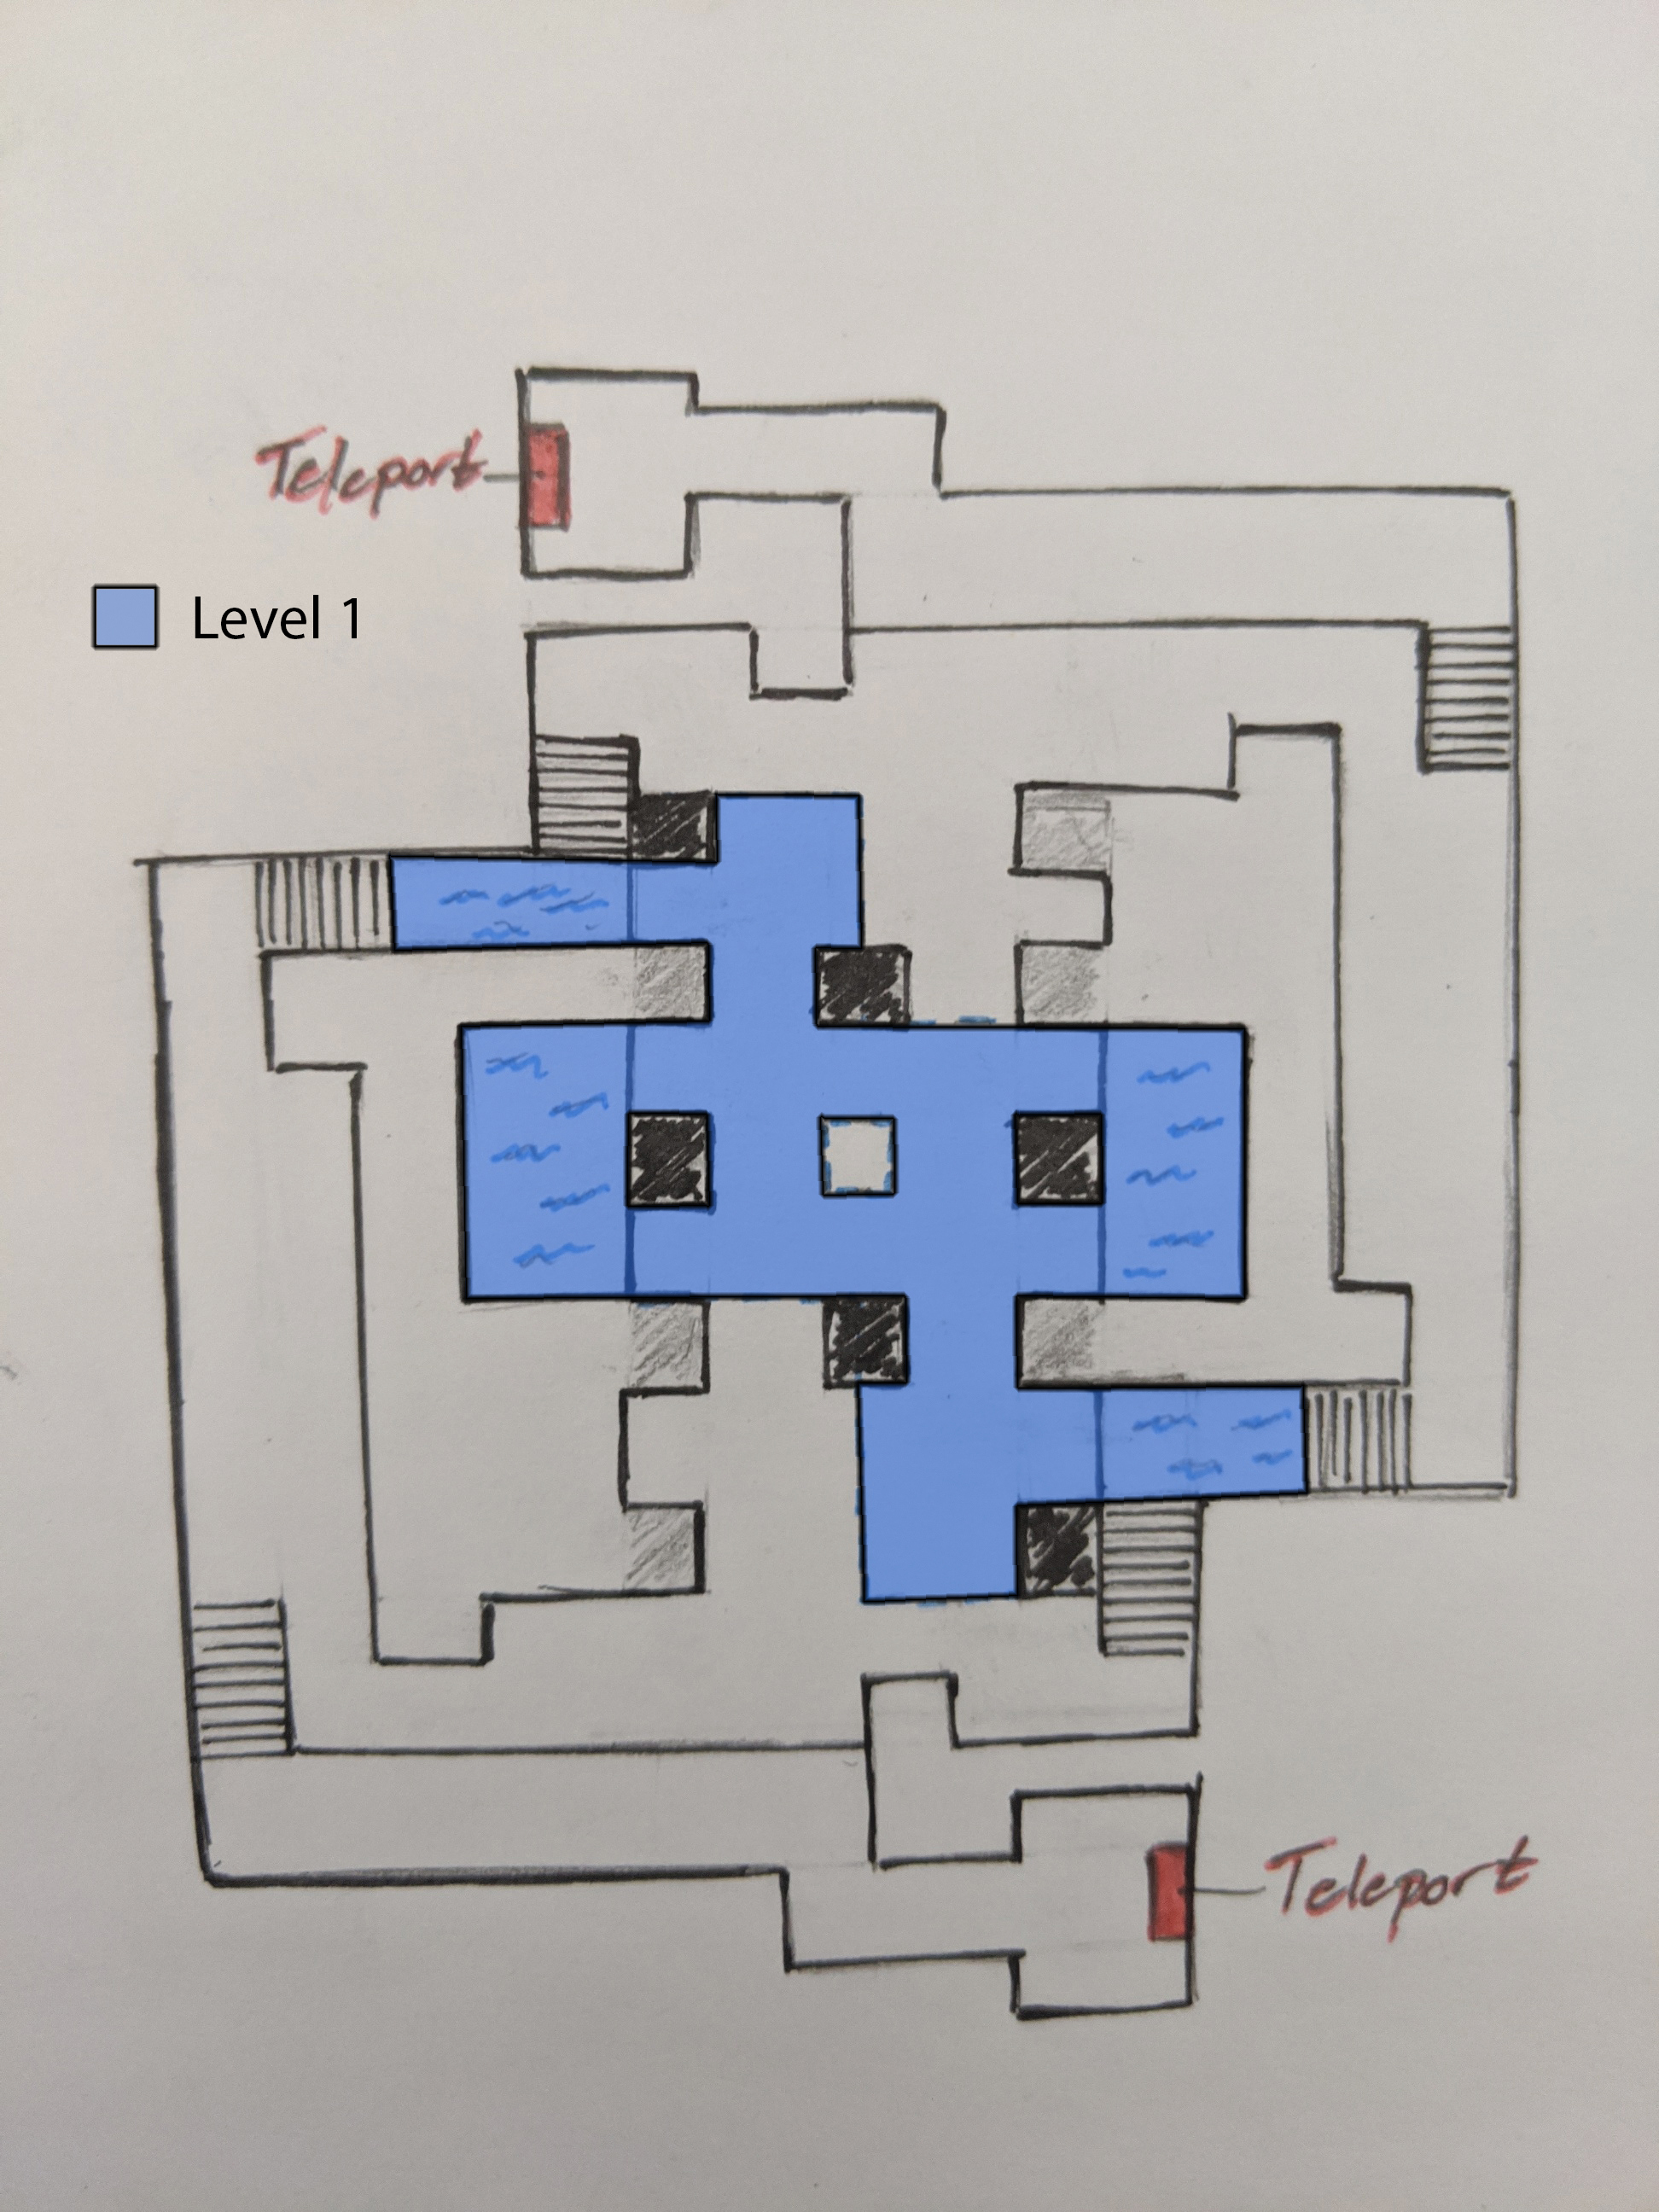 Teleport
Level 1
Teleport